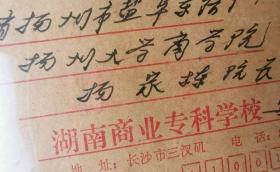 扬州市盐阜东路
扬州大学商学院
扬 泉 栋 院长
湖南商业专科学校
地 址：长沙市三汊矶 电 话：
4 1 0 0